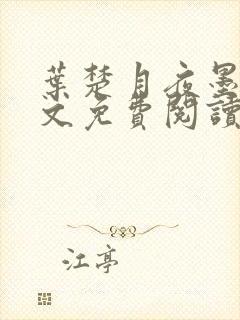 葉楚月夜墨
文免費閱讀
江亭